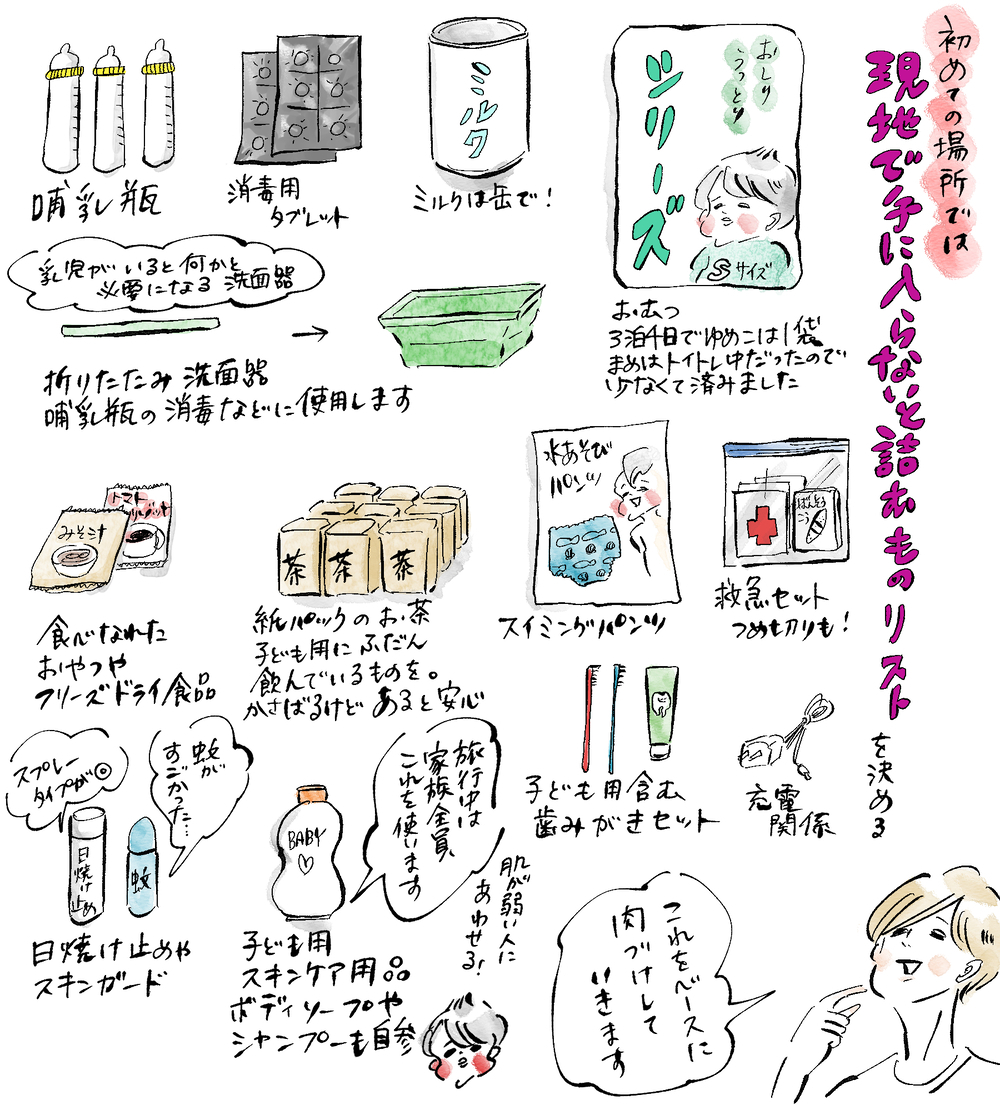 初めての場所では
現地で手に入らないと詰むものリスト
を決める
おしり
うっとり
シリーズ
Sサイズ
おむつ
3泊4日でゆめこは1袋
まめはトイトレ中だったので
少なくて済みました
ミルク
ミルクは缶で!
消毒用
タブレット
哺乳瓶
乳児がいると何かと
必要になる洗面器
折りたたみ洗面器
哺乳瓶の消毒などに使用します
ばんそう
こう
救急セット
つめ切りも!
水あそび
パンツ
スイミングパンツ
茶
茶
茶
紙パックのお茶
子ども用にふだん
飲んでいるものを。
かさばるけどあると安心
みそ汁
トマト
食べなれた
おやつや
フリーズドライ食品
充電
関係
子ども用含む
歯みがきセット
旅行中は
家族全員
これを使います
BABY
肌が弱い人に
あわせる!
子ども用
スキンケア用品
ボディソープや
シャンプーも自参
蚊が
すごかった…
スプレー
タイプが◎
日焼け止め
蚊
日焼け止めや
スキンガード
これをベースに
肉づけして
いきます